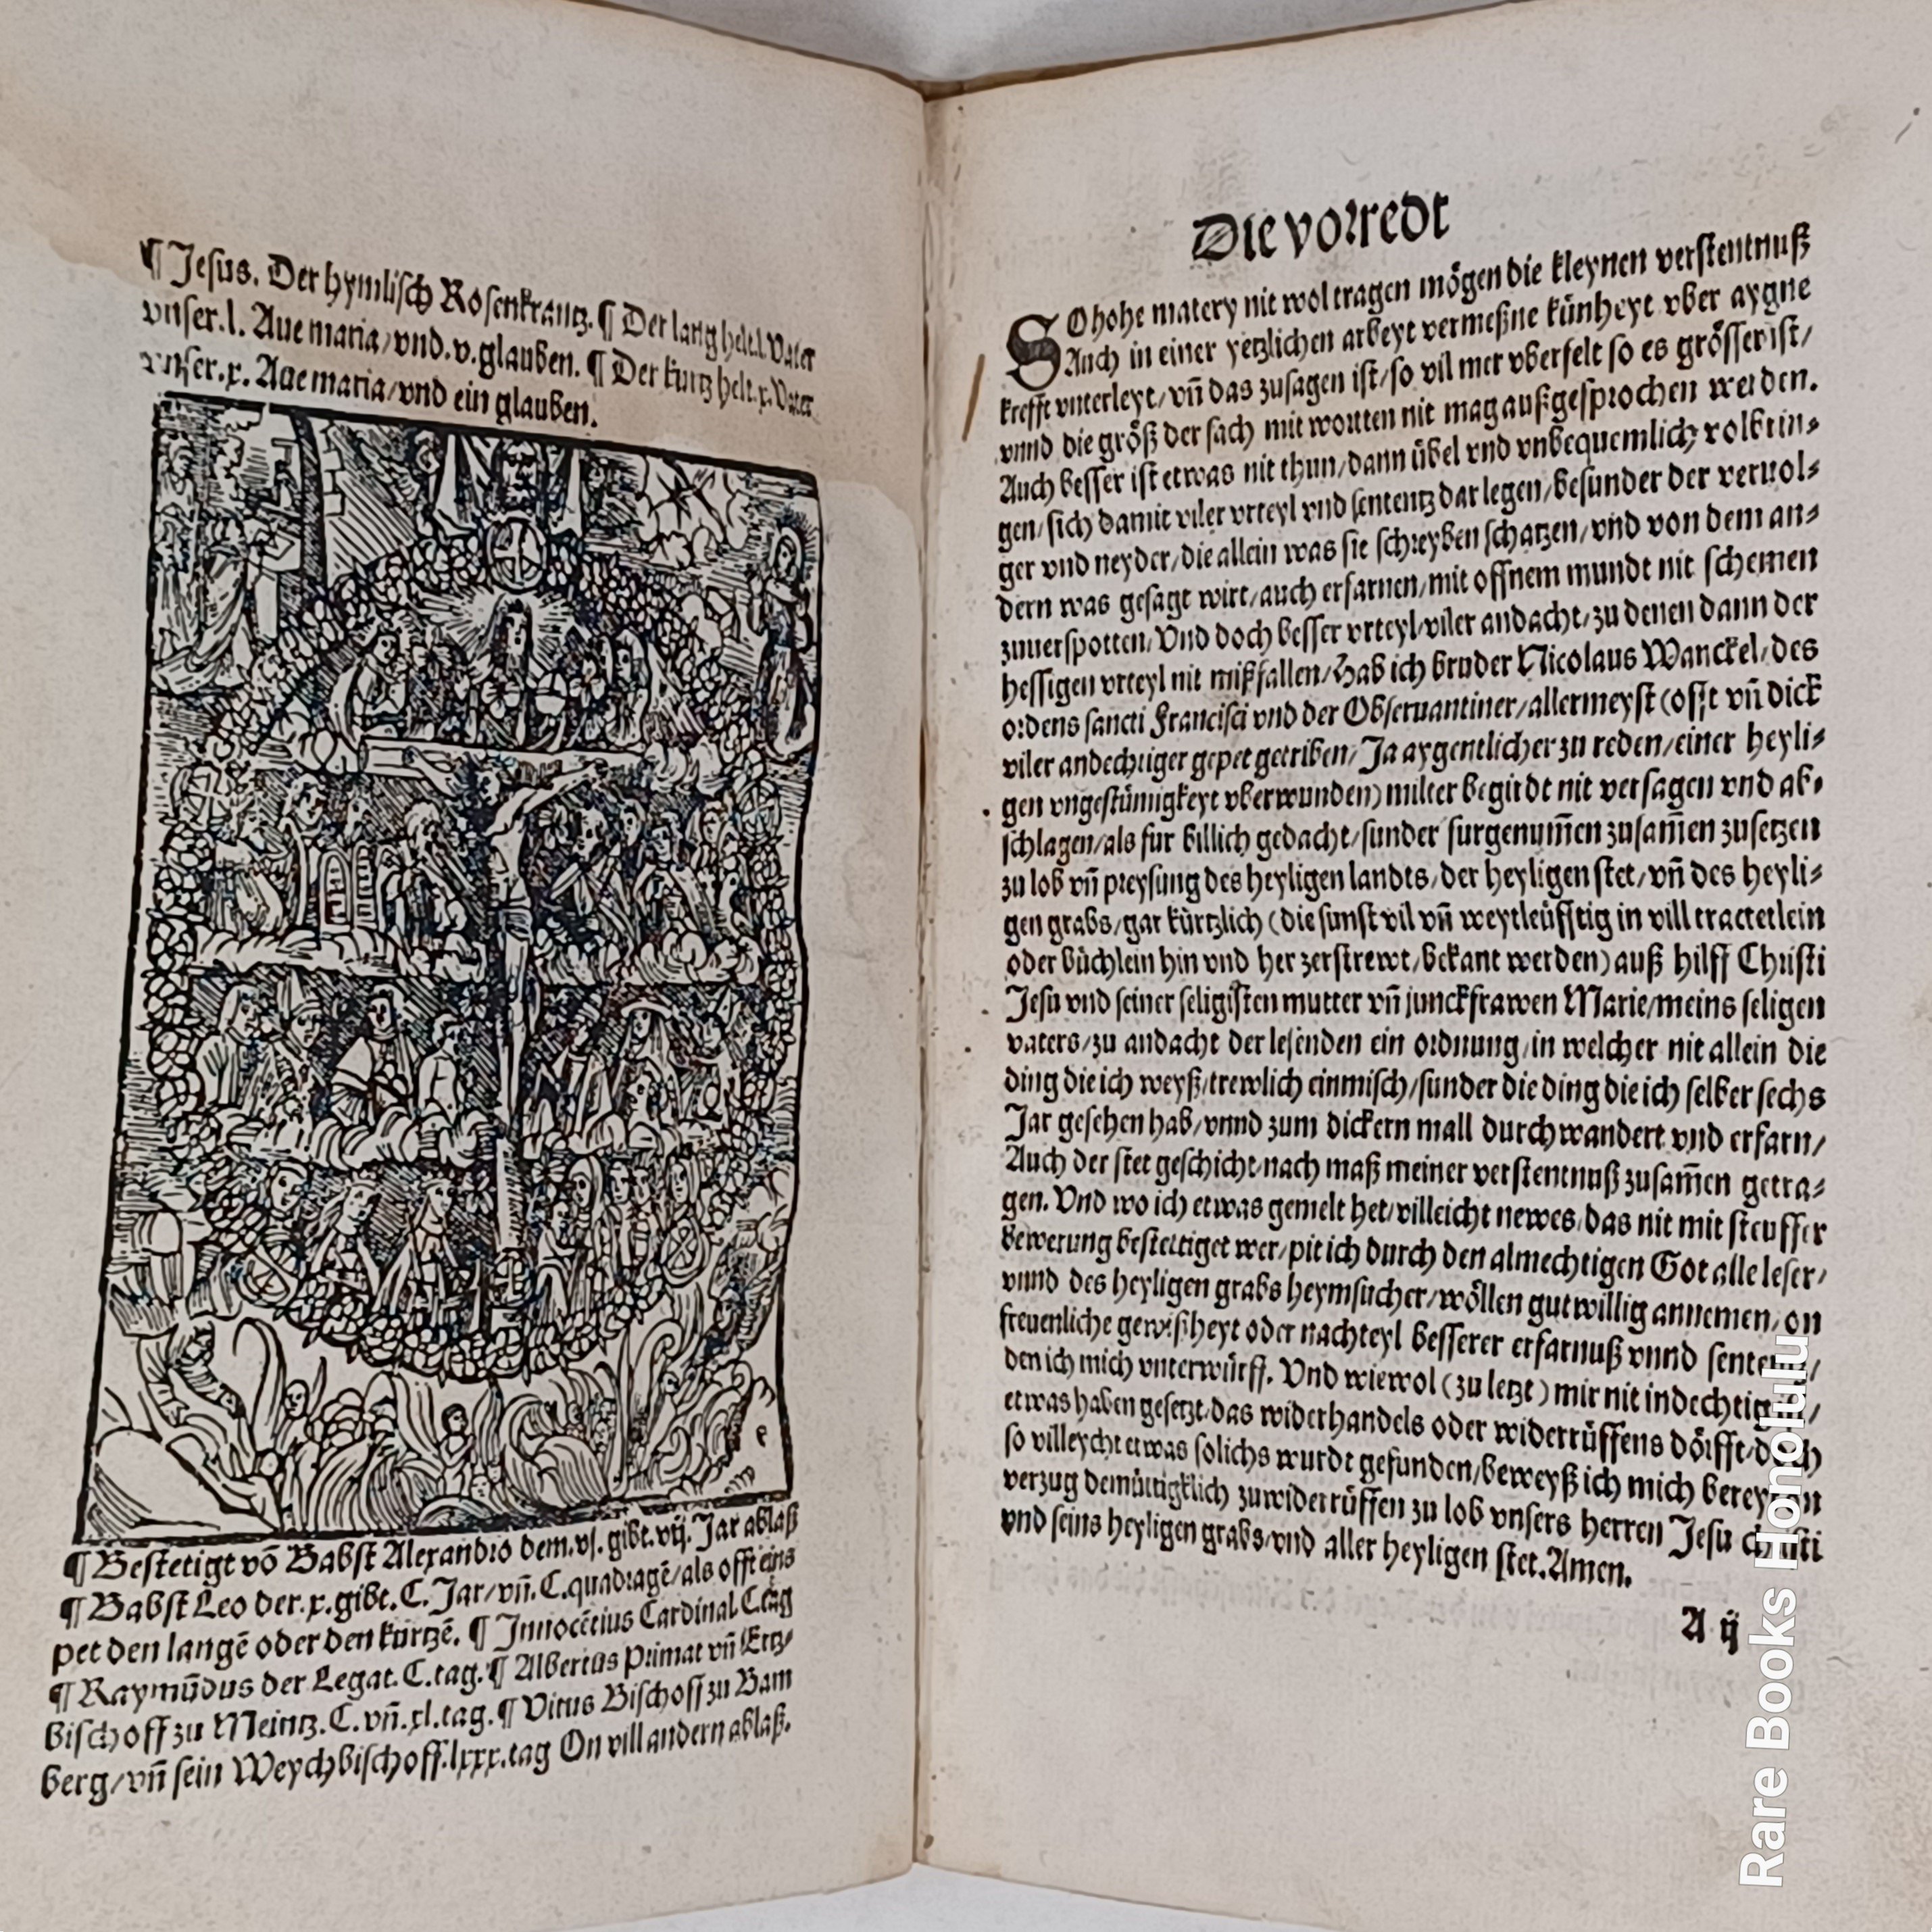 ¶ Jesus. Der hymlisch Rosenkrantz. ¶ Der lang helt.l. Vater
vnser.l. Aue maria/vnd.v.glauben. ¶ Der kurtz helt.x. Vater
vnser.x. Aue maria/vnd ein glauben.
¶ Bestetigt vō Babst Alexandro dem.vj. gibt.vij. Jar ablaß
¶ Babst Leo der.x.gibt.C.Jar/vñ.C.quadragē/als offt eins
pet den langē oder den kurtzē. ¶ Innocētius Cardinal.C.tag
¶ Raymūdus der Legat.C.tag. ¶ Albertus Primat vñ Ertz⸗
Bischoff zu Meintz.C.vñ.xl.tag. ¶ Vitus Bischoff zu Bam
berg/vñ sein Weychbischoff.lxxx.tag On vill andern ablaß.
Die vorredt
SO hohe matery nit wol tragen mögen die kleynen verstentnuß
Auch in einer yetzlichen arbeyt vermeßne künheyt vber aygne
krefft vnterleyt/vñ das zusagen ist/so vil mer vberfelt so es grösser ist/
vnnd die größ der sach mit wortten nit mag außgesprochen werden.
Auch besser ist etwas nit thun/dann übel vnd vnbequemlich volbrin⸗
gen/sich damit viler vrteyl vnd sententz dar legen/besunder der veruol⸗
ger vnd neyder/die allein was sie schreyben schatzen/vnd von dem an⸗
dern was gesagt wirt/auch erfarnen/mit offnem mundt nit schemen
zuuerspotten/Vnd doch besser vrteyl/viler andacht/zu denen dann der
hessigen vrteyl nit mißfallen/Hab ich bruder Nicolaus Wanckel/des
ordens sancti Francisci vnd der Obseruantiner/allermeyst (offt vñ dick
viler andechtiger gepet getriben/Ja aygentlicher zu reden/einer heyli⸗
gen vngestümigkeyt vberwunden) milter begirdt nit versagen vnd ab⸗
schlagen/als fur billich gedacht/sunder furgenum̄en zusam̄en zusetzen
zu lob vñ preysung des heyligen landts/der heyligen stet/vñ des heyli⸗
gen grabs/gar kürtzlich (die sunst vil vñ weytleüfftig in vill tractetlein
oder büchlein hin vnd her zerstrewt/bekant werden) auß hilff Christi
Jesu vnd seiner seligisten mutter vñ junckfrawen Marie/meins seligen
vaters/zu andacht der lesenden ein ordnung/in welcher nit allein die
ding die ich weyß/trewlich einmisch/sunder die ding die ich selber sechs
Jar gesehen hab/vnnd zum dickern mall durchwandert vnd erfarn/
Auch der stet geschicht/nach maß meiner verstentnuß zusam̄en getra⸗
gen. Vnd wo ich etwas gemelt het/villeicht newes/das nit mit steuffer
bewerung bestettiget wer/pit ich durch den almechtigen Got alle leser/
vnnd des heyligen grabs heymsucher/wöllen gutwillig annemen/on
freuenliche gewißheyt oder nachteyl besserer erfarnuß vnnd
den ich mich vnterwürff. Vnd wiewol (zu letzt) mir nit indechtig
etwas haben gesetzt/das widerhandels oder widerrüffens dörfft/doch
so villeycht etwas solichs wurdt gefunden/beweyß ich mich bereyt on
verzug demüttigklich zuwiderrüffen zu lob vnsers herren Jesu christi
vnd seins heyligen grabs/vnd aller heyligen stet.Amen.
A ij
Rare Books Honolulu